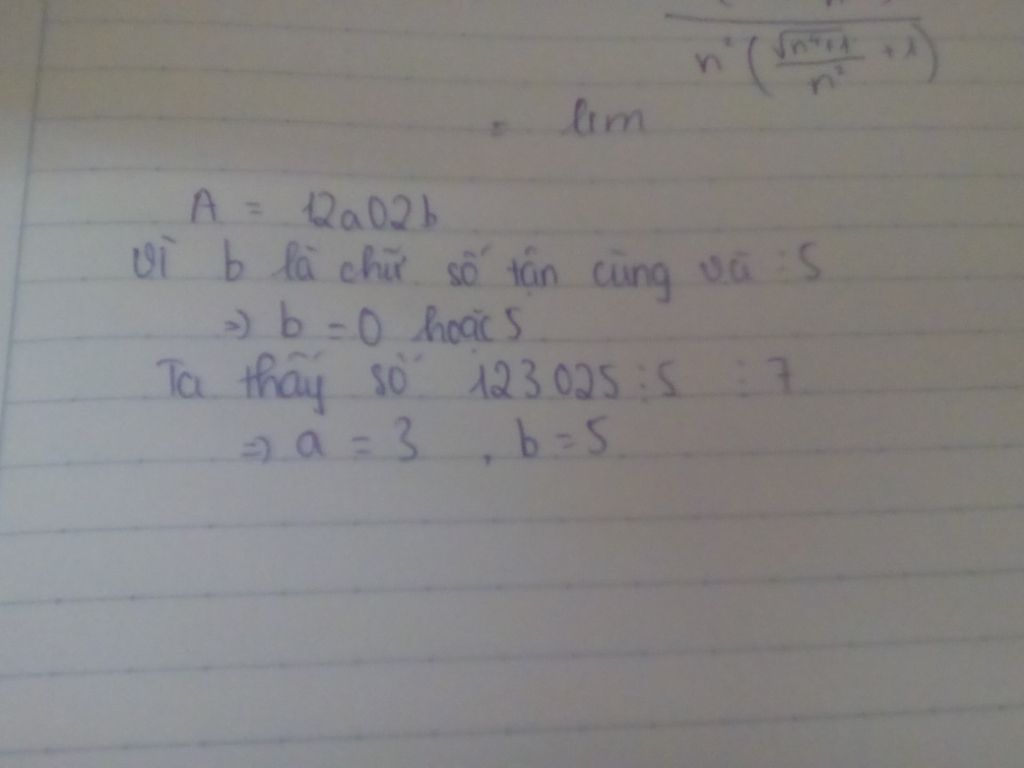 n² ( √n⁴+1 / n² + 1 )
= lim
A = 12a02b
Vì b là chữ số tận cùng và ⋮ 5
=> b = 0 hoặc 5
Ta thấy số 123025 ⋮ 5 ⋮ 7
=> a = 3 , b = 5